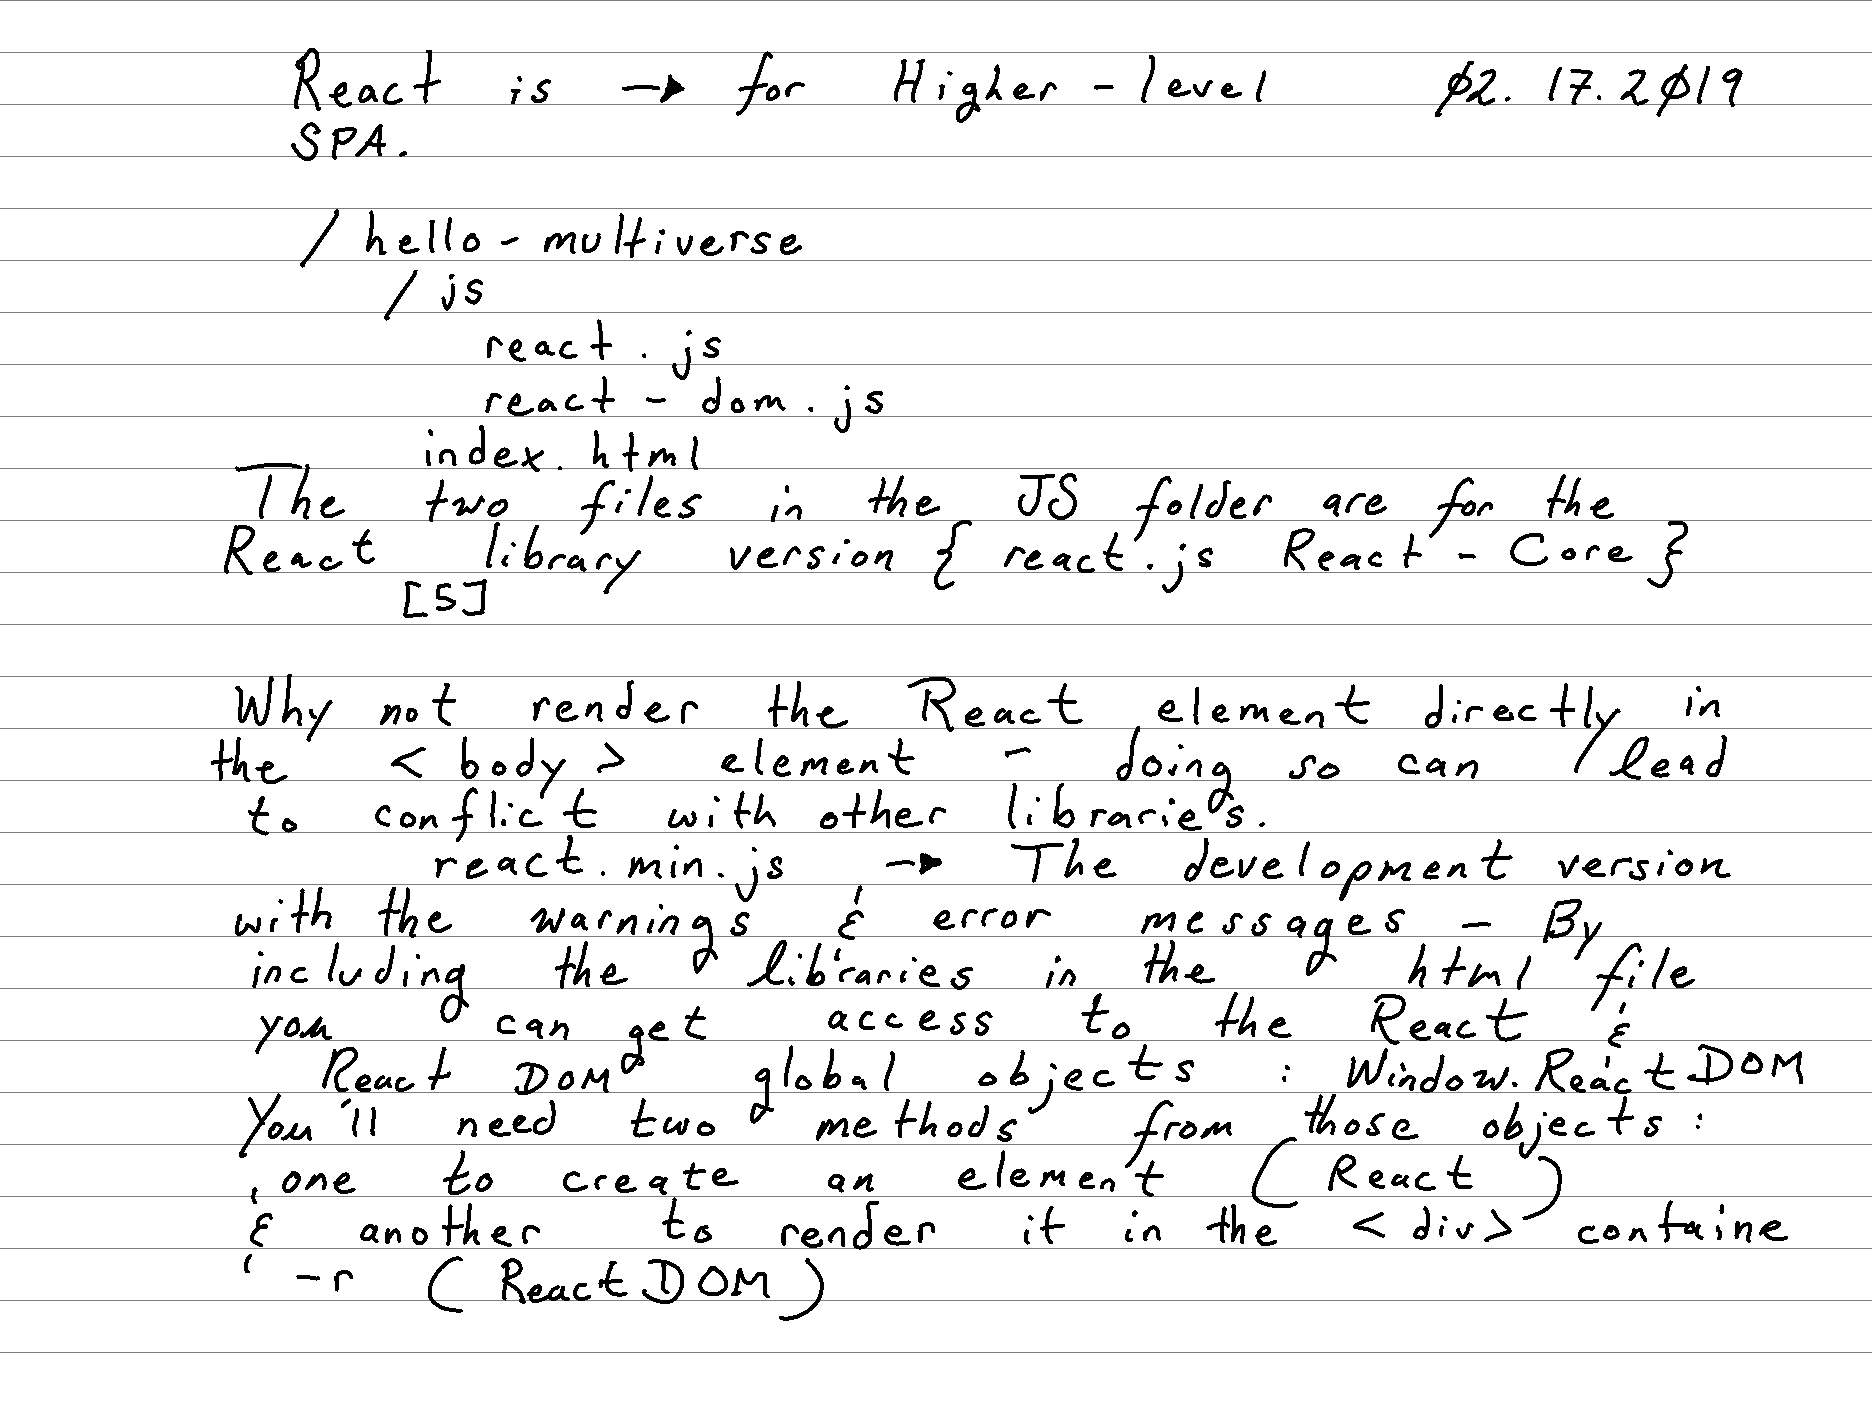 React is → for Higher-level 02.17.2019
SPA.
/hello-multiverse
/js
react.js
react-dom.js
index.html
The two files in the JS folder are for the
React library version { react.js React-Core }
[5]
Why not render the React element directly in
the <body> element - doing so can lead
to conflict with other libraries.
react.min.js → The development version
with the warnings & error messages - By
including the libraries in the html file
you can get access to the React &
React DOM global objects : Window.ReactDOM
You'll need two methods from those objects:
one to create an element (React)
& another to render it in the <div> containe
-r (ReactDOM)